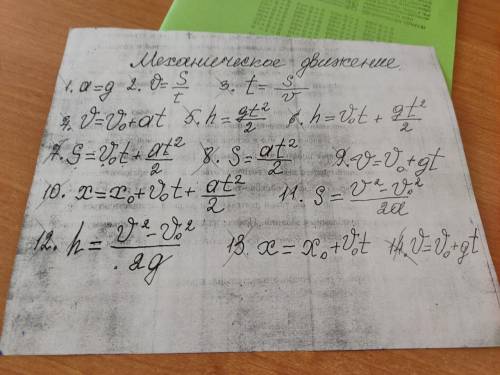 Механическое движение.
1. a=g 2. v=S/t 3. t=S/v
4. v=v₀+at 5. h=gt²/2 6. h=v₀t+gt²/2
7. S=v₀t+at²/2 8. S=at²/2 9. v=v₀+gt
10. x=x₀+v₀t+at²/2 11. S=v²-v₀²/2a
12. h=v²-v₀²/2g 13. x=x₀+v₀t 14. v=v₀+gt